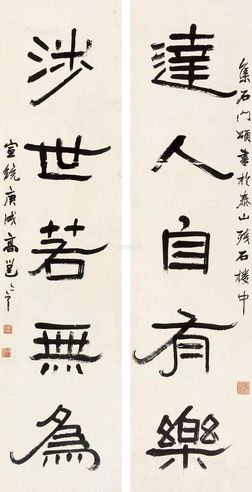 集石門頌書於泰山殘石樓中
達人自有樂
涉世若無為
宣統庚戌高邕